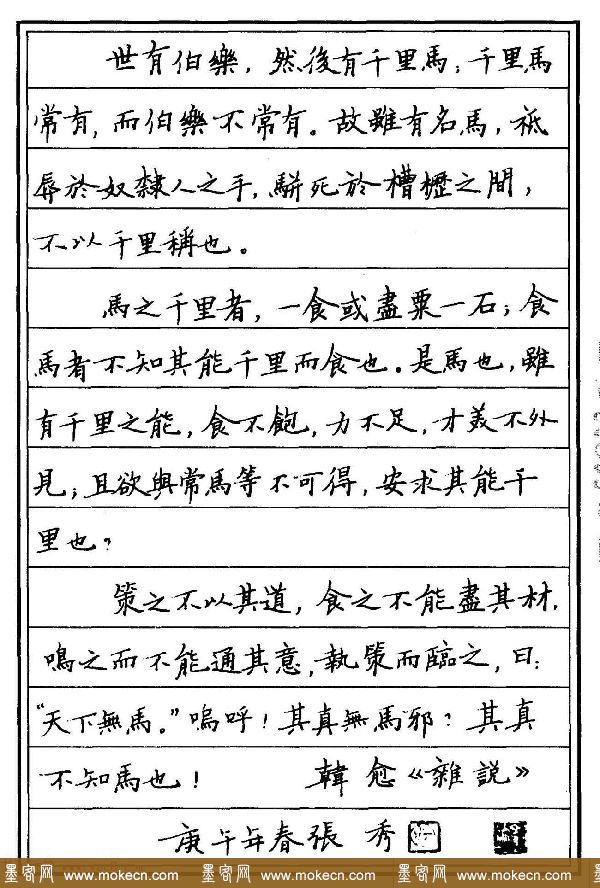 世有伯樂，然後有千里馬；千里馬
常有，而伯樂不常有。故雖有名馬，祗
辱於奴隸人之手，駢死於槽櫪之間，
不以千里稱也。
馬之千里者，一食或盡粟一石；食
馬者不知其能千里而食也。是馬也，雖
有千里之能，食不飽，力不足，才美不外
見；且欲與常馬等不可得，安求其能千
里也？
策之不以其道，食之不能盡其材，
鳴之而不能通其意，執策而臨之，曰：
“天下無馬。”嗚呼！其真無馬邪？其真
不知馬也！ 韓愈《雜說》
庚午年春張秀
墨客网 www.mokecn.com 墨客网 www.mokecn.com 墨客网 www.mokecn.com